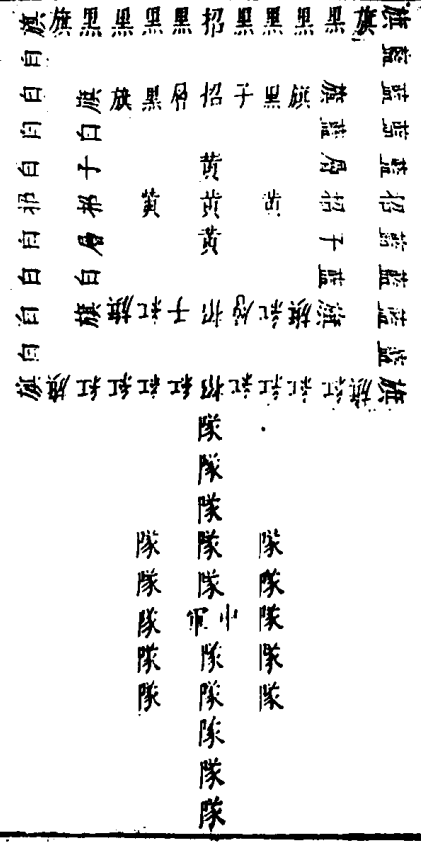 旗 旗 黑 黑 黑 黑 招 黑 黑 黑 黑 旗 旗
白 藍
白 旗 旗 黑 層 招 子 黑 旗 旗 藍
白 白 藍 藍
白 子 黃 層 藍
招 招 黃 黃 黃 招 招
白 層 黃 子 藍
白 白 藍 藍
白 旗 旗 紅 子 招 層 紅 旗 旗 藍
白 藍
旗 旗 紅 紅 紅 紅 招 紅 紅 紅 紅 旗 旗
隊
隊
隊
隊 隊 隊
隊 隊 隊
隊 中軍 隊
隊 隊 隊
隊 隊 隊
隊
隊
隊